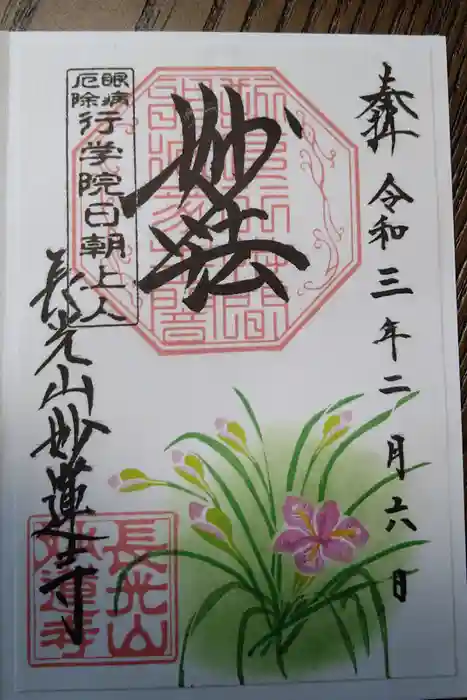 奉拝
令和三年二月六日
妙法
眼病
厄除
行学院日朝上人
長光山妙蓮寺
長光山
妙蓮寺